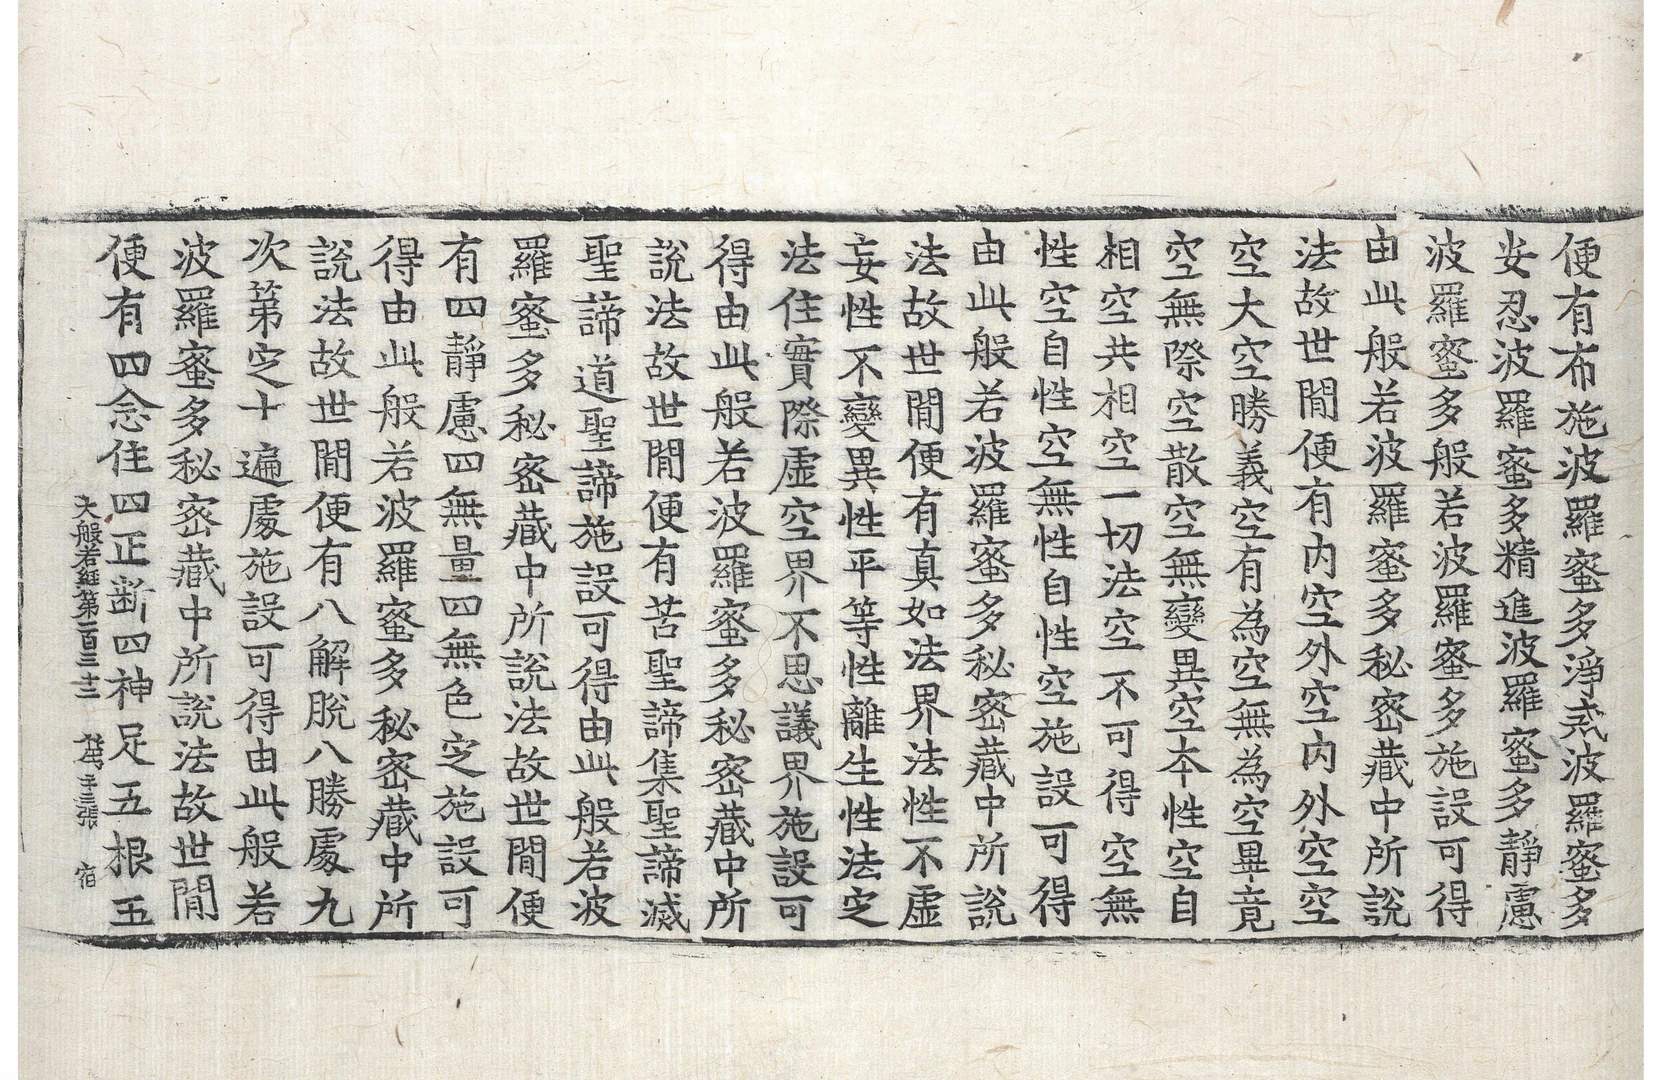 便有布施波羅蜜多淨戒波羅蜜多
安忍波羅蜜多精進波羅蜜多靜慮
波羅蜜多般若波羅蜜多施設可得
由此般若波羅蜜多秘密藏中所說
法故世間便有內空外空內外空空
空大空勝義空有為空無為空畢竟
空無際空散空無變異空本性空自
相空共相空一切法空不可得空無
性空自性空無性自性空施設可得
由此般若波羅蜜多秘密藏中所說
法故世間便有真如法界法性不虛
妄性不變異性平等性離生性法定
法住實際虛空界不思議界施設可
得由此般若波羅蜜多秘密藏中所
說法故世間便有苦聖諦集聖諦滅
聖諦道聖諦施設可得由此般若波
羅蜜多秘密藏中所說法故世間便
有四靜慮四無量四無色定施設可
得由此般若波羅蜜多秘密藏中所
說法故世間便有八解脫八勝處九
次第定十遍處施設可得由此般若
波羅蜜多秘密藏中所說法故世間
便有四念住四正斷四神足五根五
大般若經第一百三十 張 宿